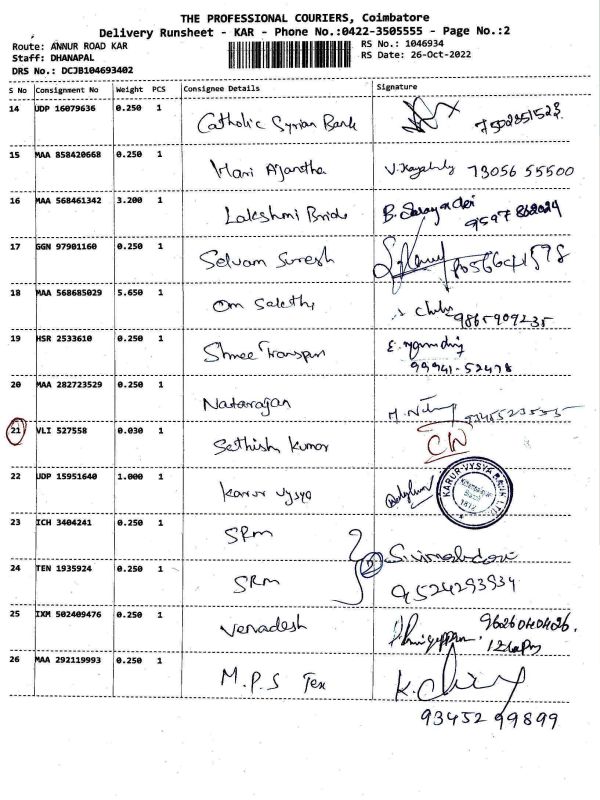 THE PROFESSIONAL COURIERS, Coimbatore
Delivery Runsheet - KAR - Phone No.:0422-3505555 - Page No.:2
Route: ANNUR ROAD KAR
RS No.: 1046934
Staff: DHANAPAL
RS Date: 26-Oct-2022
DRS No.: DCJB104693402
S No Consignment No Weight PCS Consignee Details Signature
14 UDP 16079636 0.250 1 Catholic Syrian Bank
7502351523
15 MAA 858420668 0.250 1 Hari Ajantha 73056 55500
16 MAA 568461342 3.200 1 Lakshmi Bride B.
17 GGN 97901160 0.250 1 Selvam Suresh
18 MAA 568685029 5.650 1 Om Sakthi
9865909235
19 HSR 2533610 0.250 1 Shree Transpor E.
99941-52478
20 MAA 282723529 0.250 1 Natarajan
21 VLI 527558 0.030 1 Sethish Kumar CW
22 UDP 15951640 1.000 1 Karur Vysya
KARUR VYSYA BANK LTD
23 ICH 3404241 0.250 1 SRM
2
24 TEN 1935924 0.250 1 SRM 9524293934
25 IXM 502409476 0.250 1 Venadesh 9626040426.
26 MAA 292119993 0.250 1 M.P.S Tex K.
93452 99899